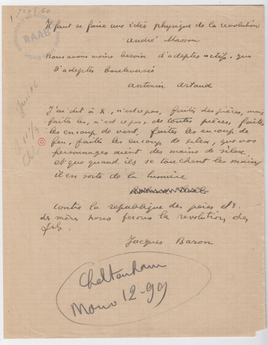 Il faut se faire une idée physique de la revolution
André Masson
Nous avons moins besoin d'adeptes actifs, que
d'adeptes bouleversés
Antonin Artaud
J'ai dit à X, n'est ce pas, faites des pièces, mais
faites les, n'est ce pas, de toutes pièces, faites
les en coup de vent, faites les en coup de
feu, faites les en coup de silex, que vos
personnages aient des mains de silex
et que quand ils se touchent les mains
il en sorte de la lumière
Contre la republique des pères et
des mères nous ferons la revolution des
fils
Jacques Baron
Cheltenham
Mono 12-99
RAAB